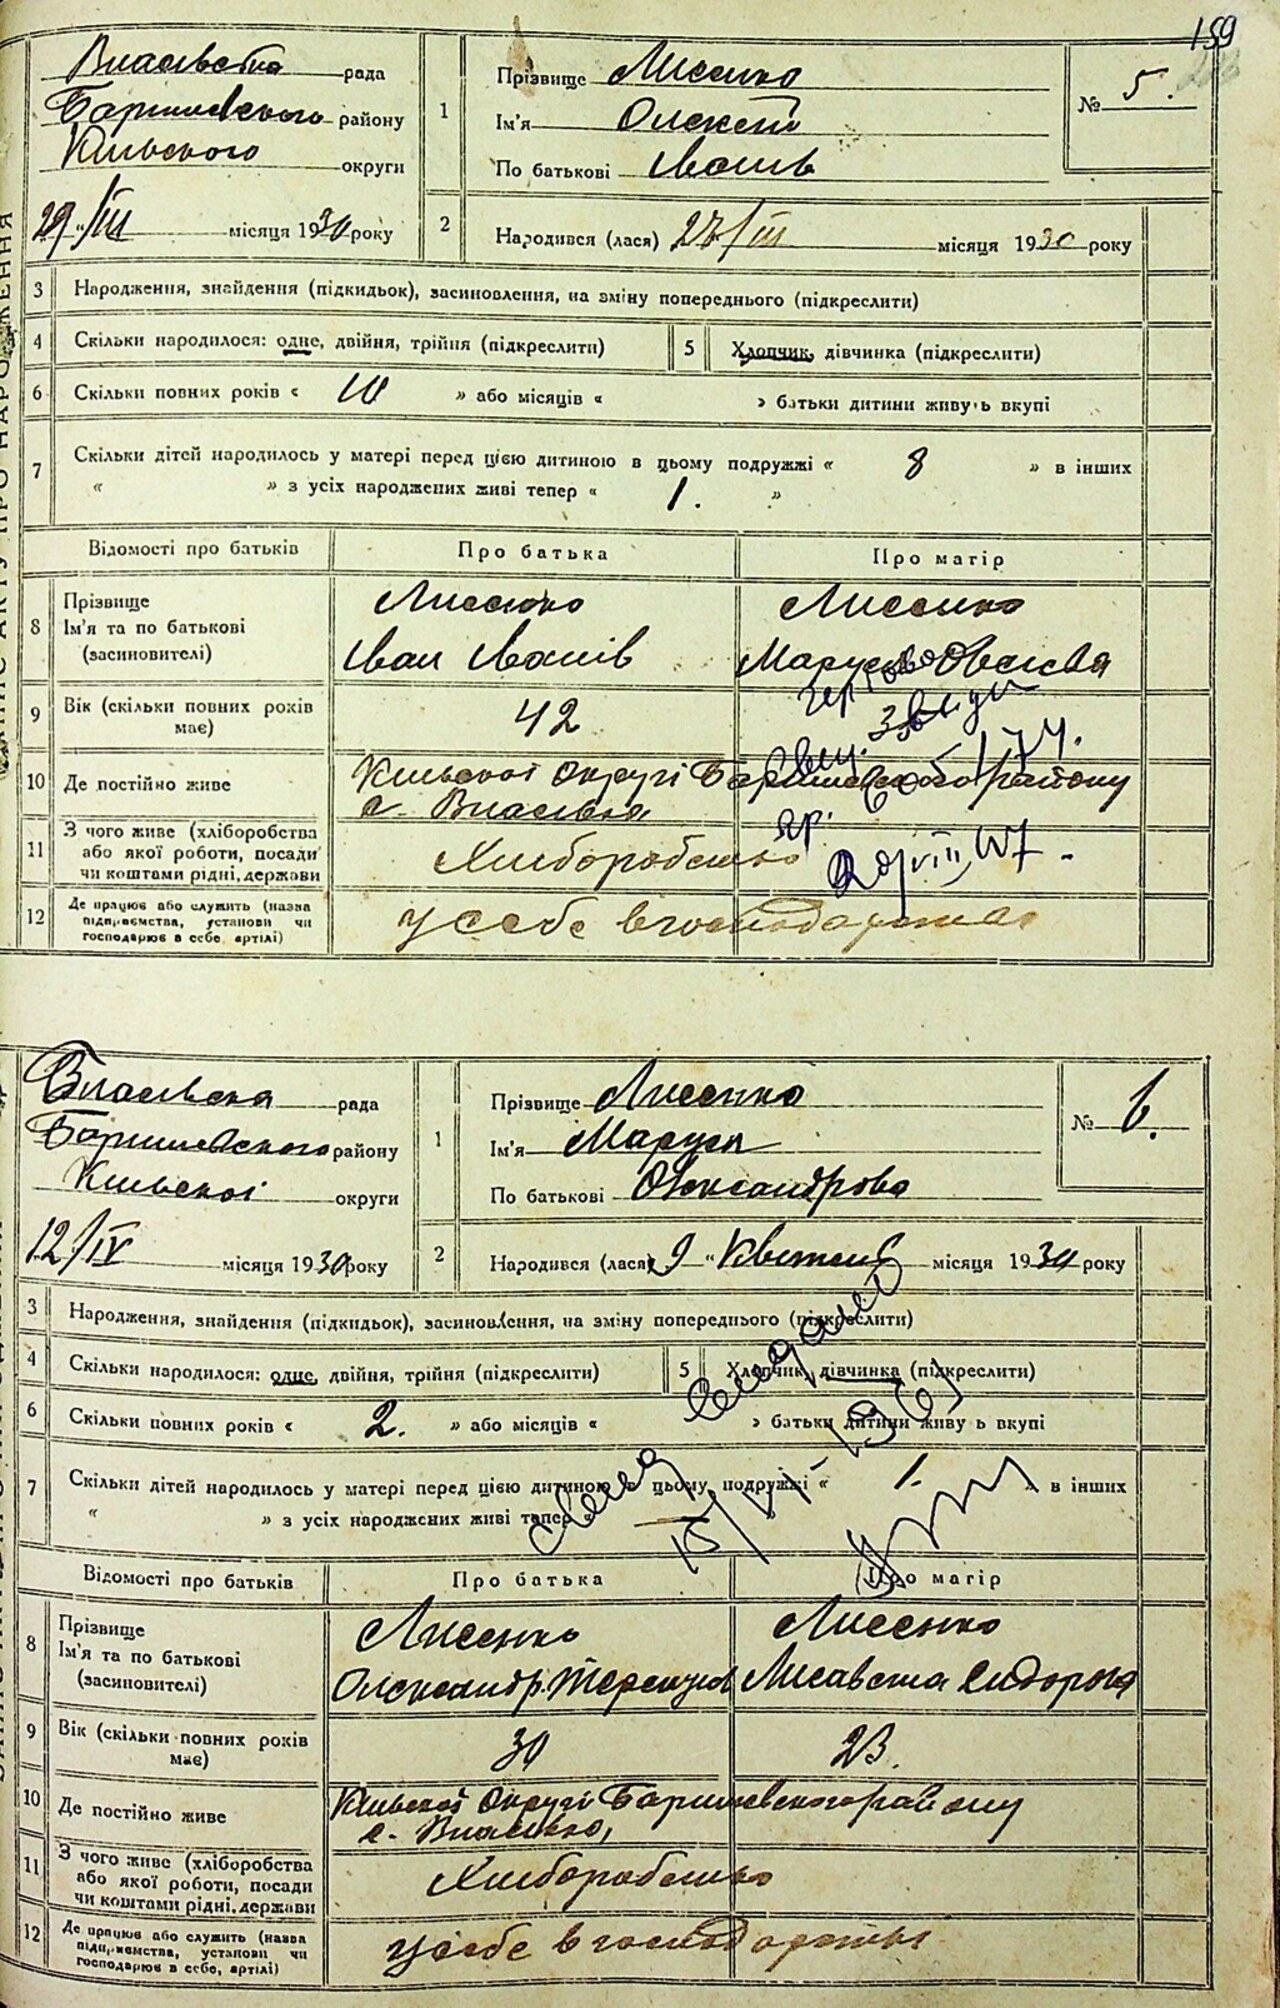 159
Власівська рада
Баришевского району
Київского округи
29/III місяця 1930 року
1
Прізвище Лисенко
Ім'я Олексій
По батькові Іванів
№ 5.
2
Народився (лася) 27/III місяця 1930 року
3 Народження, знайдення (підкидьок), засиновлення, на зміну попереднього (підкреслити)
4 Скільки народилося: одне, двійня, трійня (підкреслити)
5 Хлопчик, дівчинка (підкреслити)
6 Скільки повних років « 10 » або місяців « » батьки дитини живуть вкупі
7 Скільки дітей народилось у матері перед цією дитиною в цьому подружжі « 8 » в інших
« » з усіх народжених живі тепер « 1. »
Відомості про батьків Про батька Про матір
8 Прізвище Лисенко Лисенко
Ім'я та по батькові Іван Іванів Маруся
(засиновителі)
9 Вік (скільки повних років 42
має)
10 Де постійно живе Київської Округі Баришевського району
с. Власівка
11 З чого живе (хліборобства
або якої роботи, посади Хліборобство
чи коштами рідні, держави
12 Де працює або служить (назва
підприємства, установи чи у себе в господарстві
господарює в себе, артілі)
Власівська рада
Баришевского району
Київської округи
12/IV місяця 1930 року
1
Прізвище Лисенко
Ім'я Маруся
По батькові Олександрова
№ 6.
2
Народився (лася) 9 " Квітня місяця 1930 року
3 Народження, знайдення (підкидьок), засиновлення, на зміну попереднього (підкреслити)
4 Скільки народилося: одне, двійня, трійня (підкреслити)
5 Хлопчик, дівчинка (підкреслити)
6 Скільки повних років « 2. » або місяців « » батьки дитини живуть вкупі
7 Скільки дітей народилось у матері перед цією дитиною в цьому подружжі « 1. » в інших
« » з усіх народжених живі тепер « — »
Відомості про батьків Про батька Про матір
8 Прізвище Лисенко Лисенко
Ім'я та по батькові Олександр Лисавета Сидорова
(засиновителі)
9 Вік (скільки повних років 30 23.
має)
10 Де постійно живе Київської Округі Баришевского району
с. Власівка,
11 З чого живе (хліборобства
або якої роботи, посади Хліборобство
чи коштами рідні, держави
12 Де працює або служить (назва
підприємства, установи чи у себе в господарстві
господарює в себе, артілі)